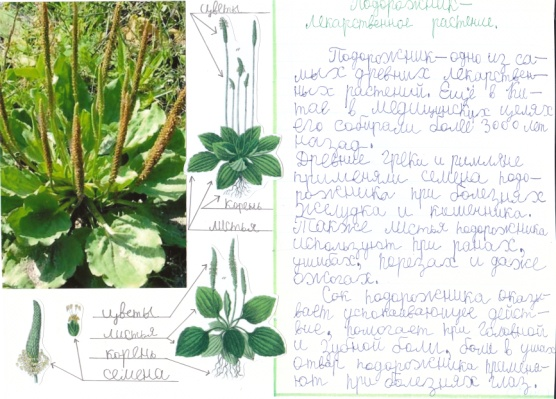 цветы
корень
листья
цветы
листья
корень
семена
Подорожник—
лекарственное растение.
Подорожник—одно из са-
мых древних лекарствен-
ных растений. Ещё в Ки-
тае в медицинских целях
его собирали более 3000 лет
назад.
Древние греки и римляне
применяли семена подо-
рожника при болезнях
желудка и кишечника.
Также листья подорожника
используют при ранах,
ушибах, порезах и даже
ожогах.
Сок подорожника оказы-
вает успокаивающее дейст-
вие, помогает при головной
и зубной боли, боли в ушах
отвар подорожника применя-
ют при болезнях глаз.